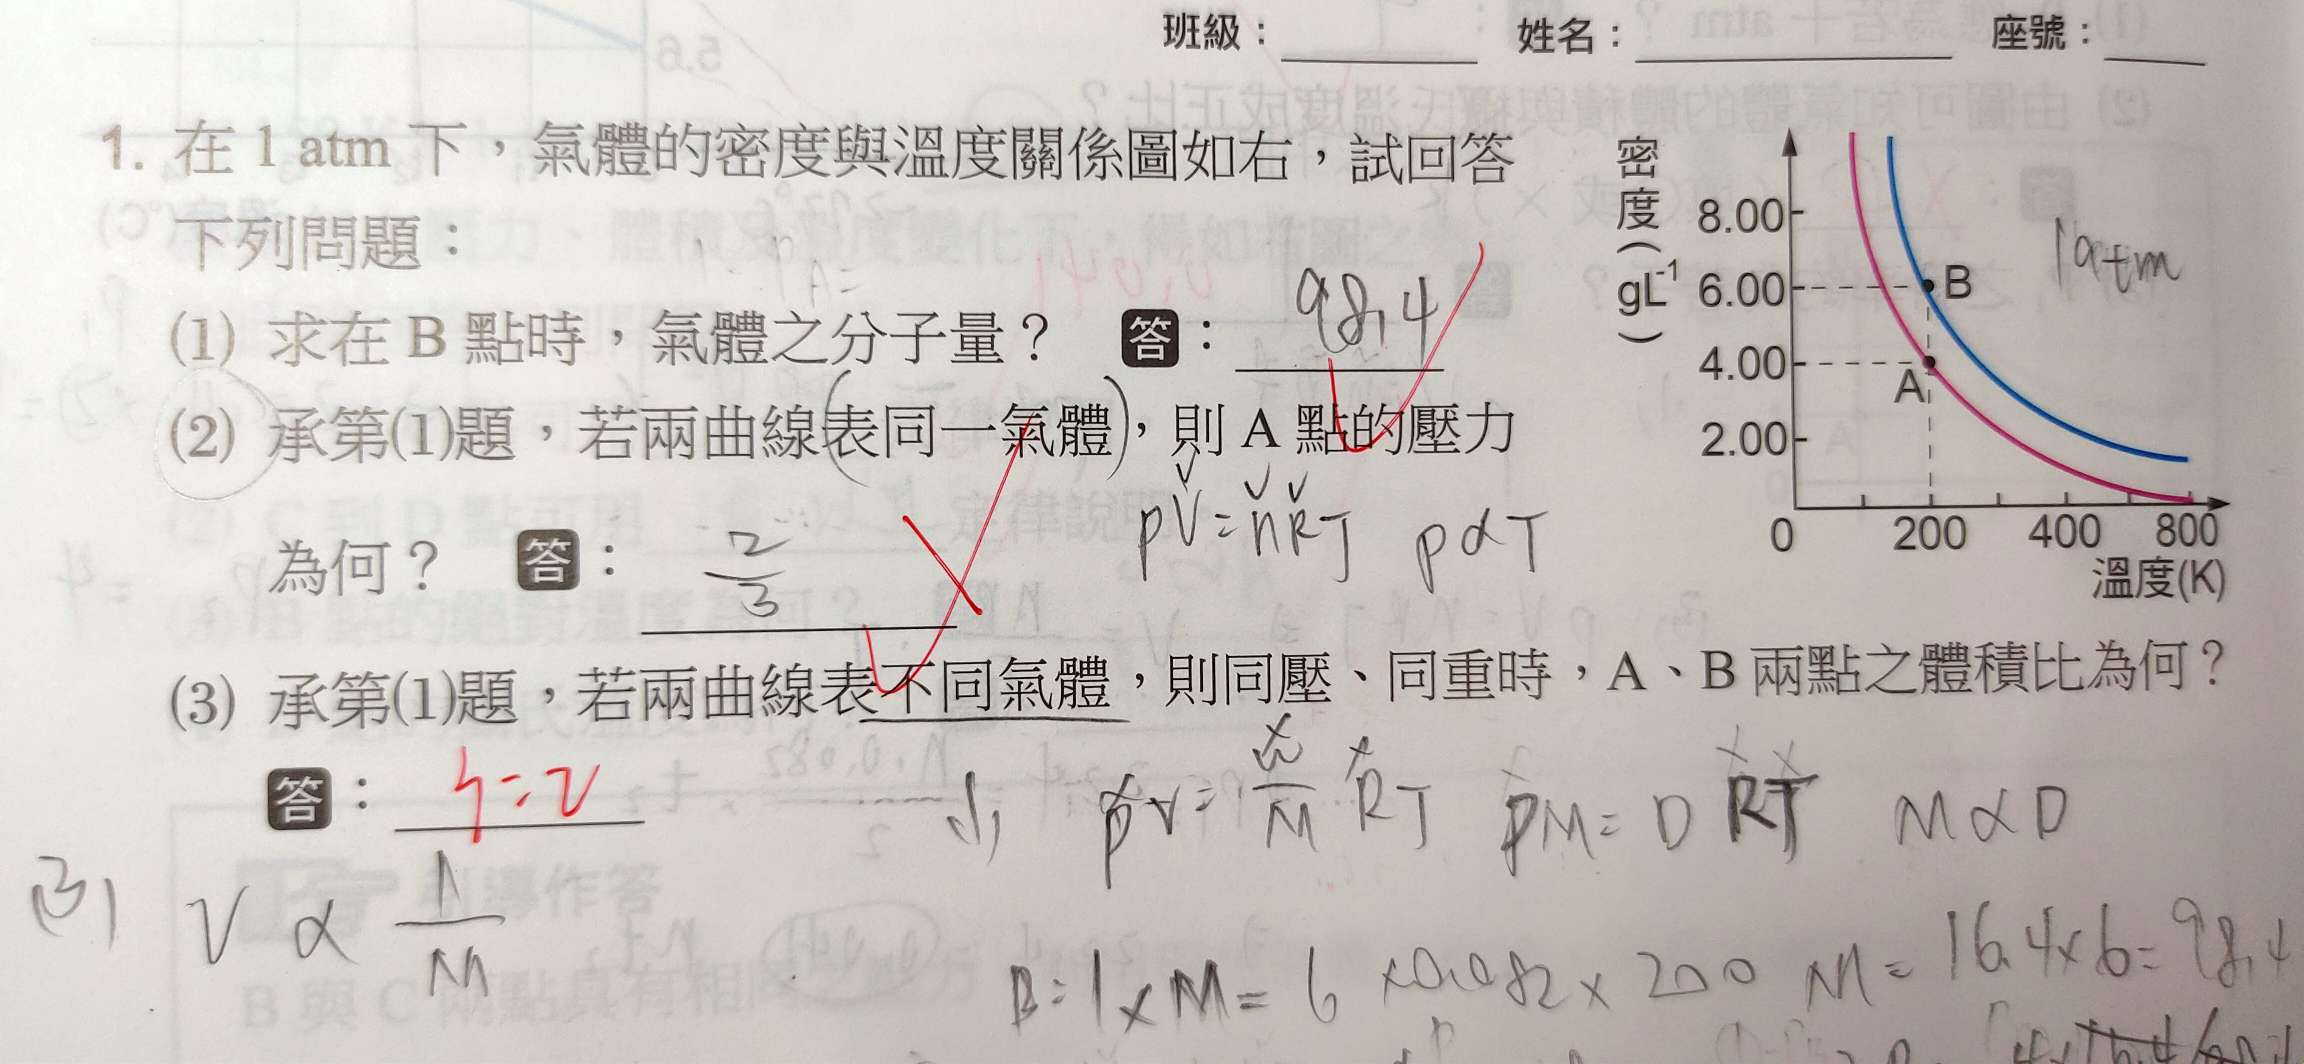 班級： 姓名： 座號：
1. 在 1 atm 下，氣體的密度與溫度關係圖如右，試回答
下列問題：
(1) 求在 B 點時，氣體之分子量？ 答： 98.4
(2) 承第(1)題，若兩曲線(表同一氣體)，則 A 點的壓力
為何？ 答： 2/3
pV=nRT p∝T
(3) 承第(1)題，若兩曲線表不同氣體，則同壓、同重時，A、B 兩點之體積比為何？
答：
pV= W/M RT PM=DRT M∝D
(3) V ∝ 1/M
B: 1×M=6×0.082×200 M=16.4×6=98.4
密度(gL⁻¹)
8.00
6.00
4.00
2.00
B
A
1atm
0 200 400 800
溫度(K)